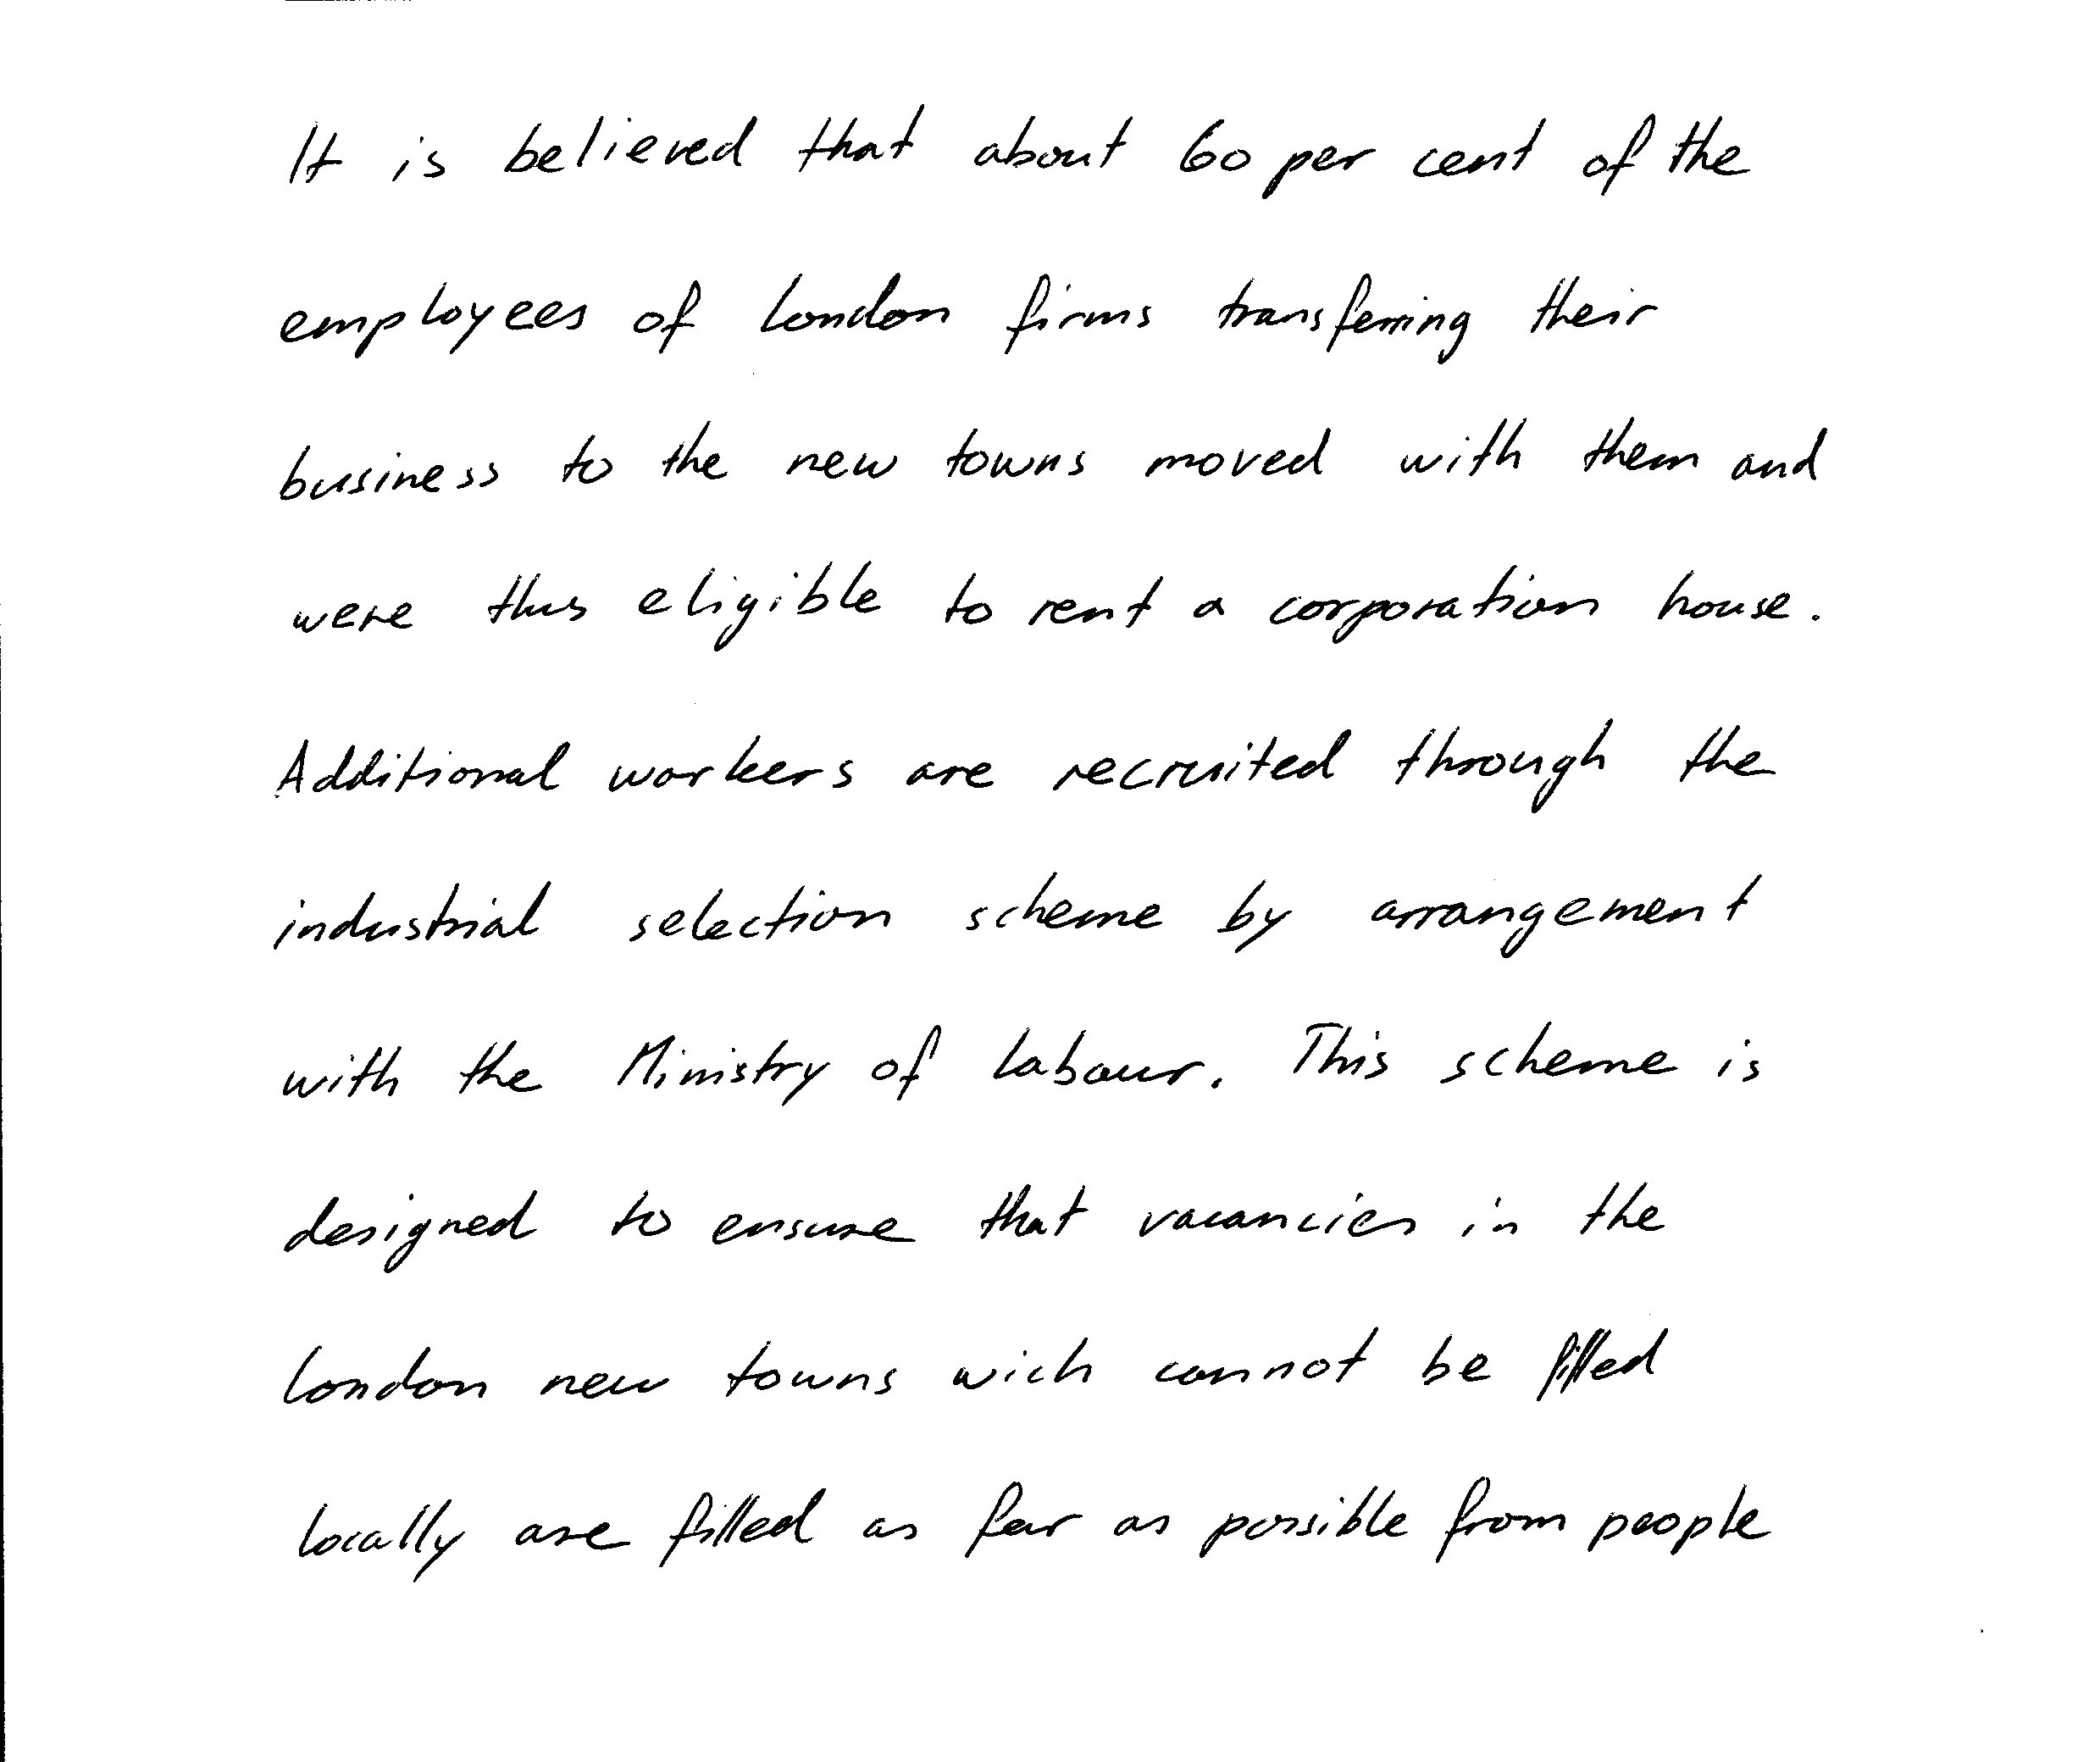 It is believed that about 60 per cent of the
employees of London firms transferring their
business to the new towns moved with them and
were thus eligible to rent a corporation house.
Additional workers are recruited through the
industrial selection scheme by arrangement
with the Ministry of Labour. This scheme is
designed to ensure that vacancies in the
London new towns wich cannot be filled
locally are filled as far as possible from people